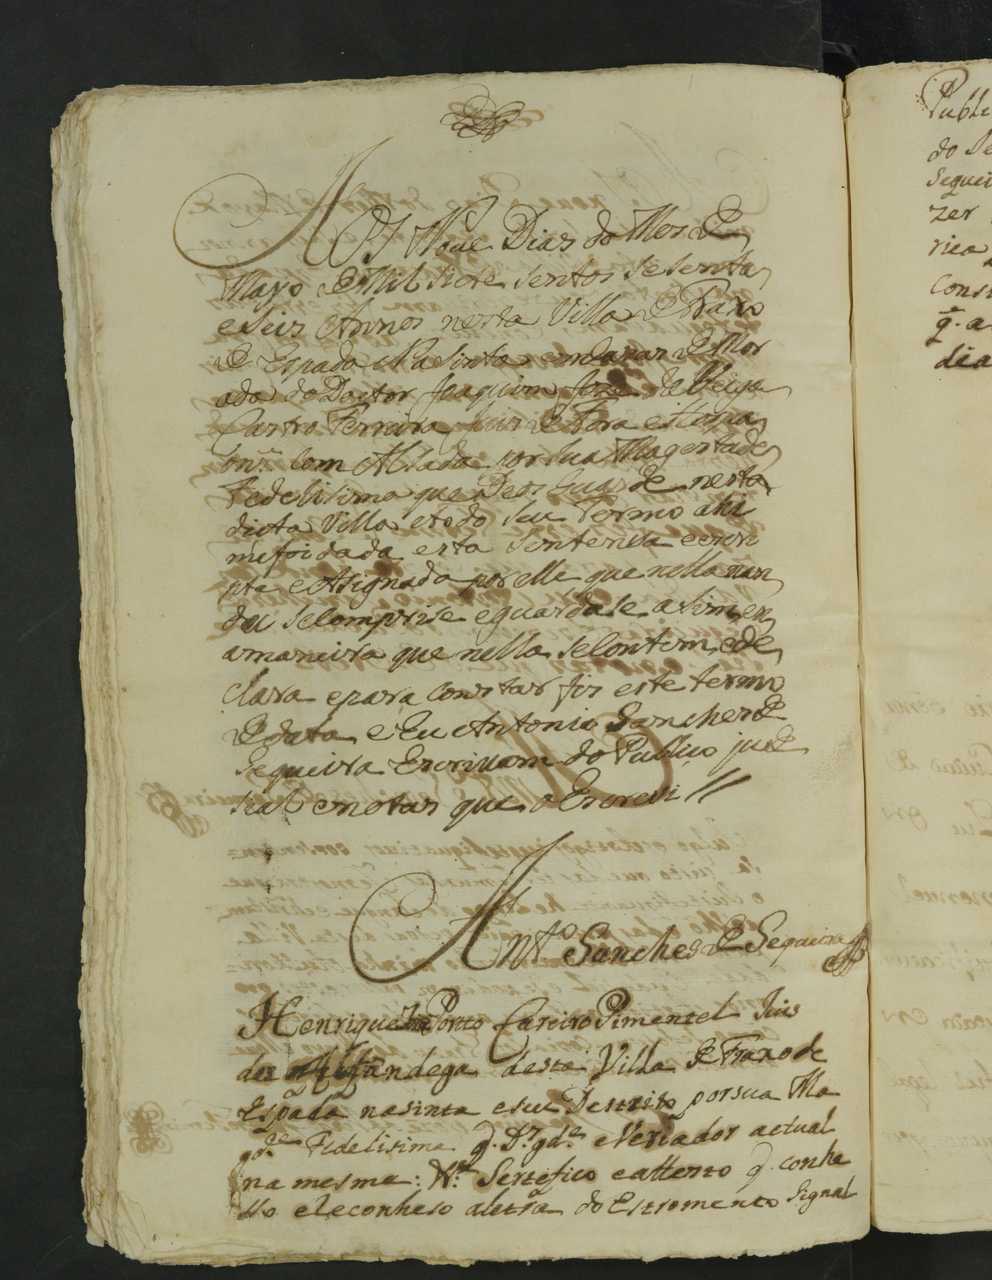 Aos Nove Dias do Mes de
Mayo de Mil Sete sentos sesenta
e seis Annos nesta Villa de Fraxo
de Espada Nasinta em Cazas de Mor
ada do Doctor Joaquim Joze de
Castro Ferreira Juis de Fora
Com Alsada por sua Magestade
Fedelisima que Deos Guarde nesta
dicta Villa e todo seu Termo ahi
me foi dada esta Sentensa escri
pta e Asignada por elle que nella man
dou se Comprise e guardase asim e n
a maneira que nella se Contem e de
clara e para Constar fis este termo
de data e Eu Antonio Sanches de
Sequeira Escrivam do Publico judi
sial e notas que o Escrevi //
Ant.º Sanches de Sequeira
Henrique Porto Careiro Pimentel Juis
da Alfandega desta Villa de Fraxo de
Espada nasinta e seu Destrito por sua Ma
g.de Fidelisima q. D.s g.de e Veriador actual
na mesma: Sertefico e attesto q. conhe
sso e leconheso a letra do Estromento Signal
Publi
do Se
Sequei
zer
rica
Cons
q. a
dia